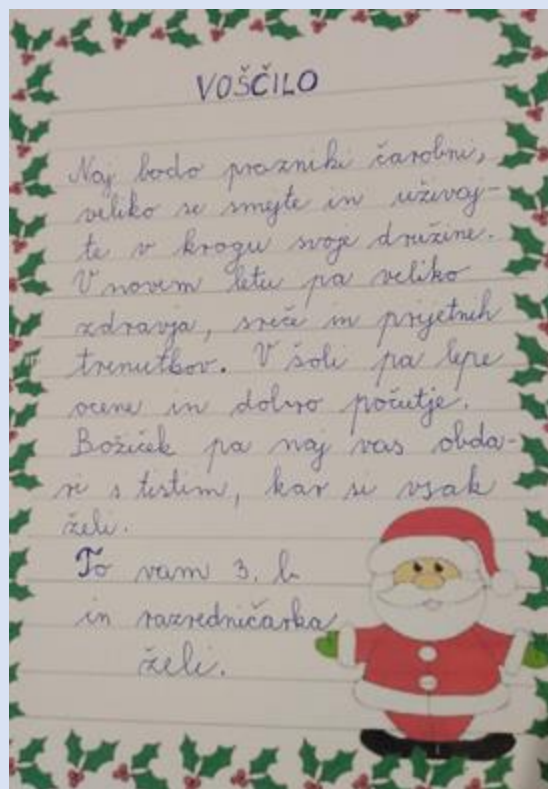 VOŠČILO
Naj bodo prazniki čarobni,
veliko se smejte in uživaj-
te v krogu svoje družine.
V novem letu pa veliko
zdravja, sreče in prijetnih
trenutkov. V šoli pa lepe
ocene in dobro počutje.
Božiček pa naj vas obda-
ri s tistim, kar si vsak
želi.
To vam 3. b
in razredničarka
želi.